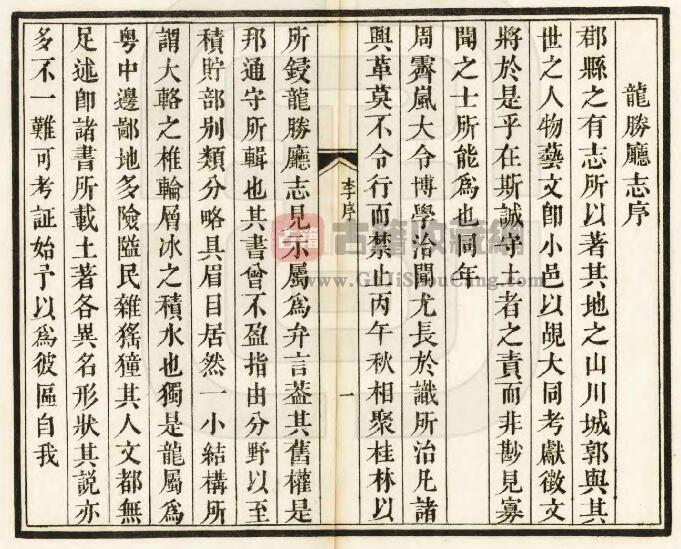 龍勝廳志序
郡縣之有志所以著其地之山川城郭與其
世之人物藝文卽小邑以覘大同考獻徵文
將於是乎在斯誠守土者之責而非尠見寡
聞之士所能爲也同年
周霽嵐大令博學洽聞尤長於識所治凡諸
興革莫不令行而禁止丙午秋相聚桂林以
李序
一
所鋟龍勝廳志見示屬爲弁言蓋其舊權是
邦通守所輯也其書曾不盈指由分野以至
積貯部別類分略具眉目居然一小結構所
謂大輅之椎輪層冰之積水也獨是龍屬爲
粵中邊鄙地多險隘民雜猺獞其人文都無
足述卽諸書所載土著各異名形狀其說亦
多不一難可考証始予以爲彼區自我
古籍
古籍收藏網
www.GuJiShouCang.com